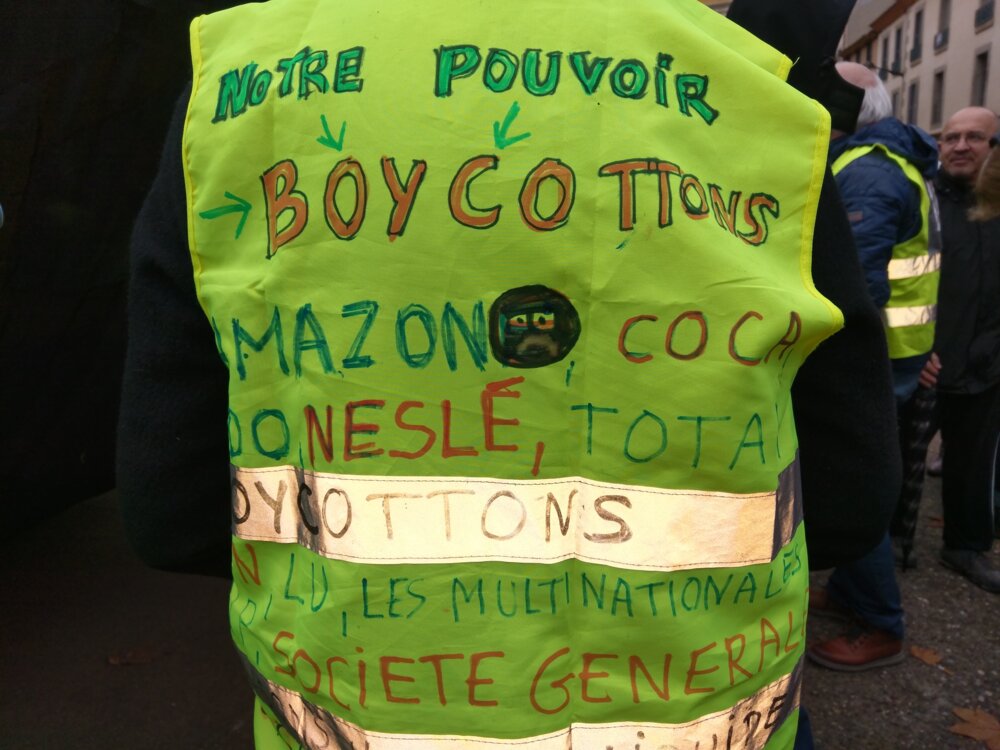 NOTRE POUVOIR
BOYCOTTONS
AMAZON, COCA
DO NESLÉ, TOTAL
BOYCOTTONS
LU, LES MULTINATIONALES
SOCIETE GENERALE